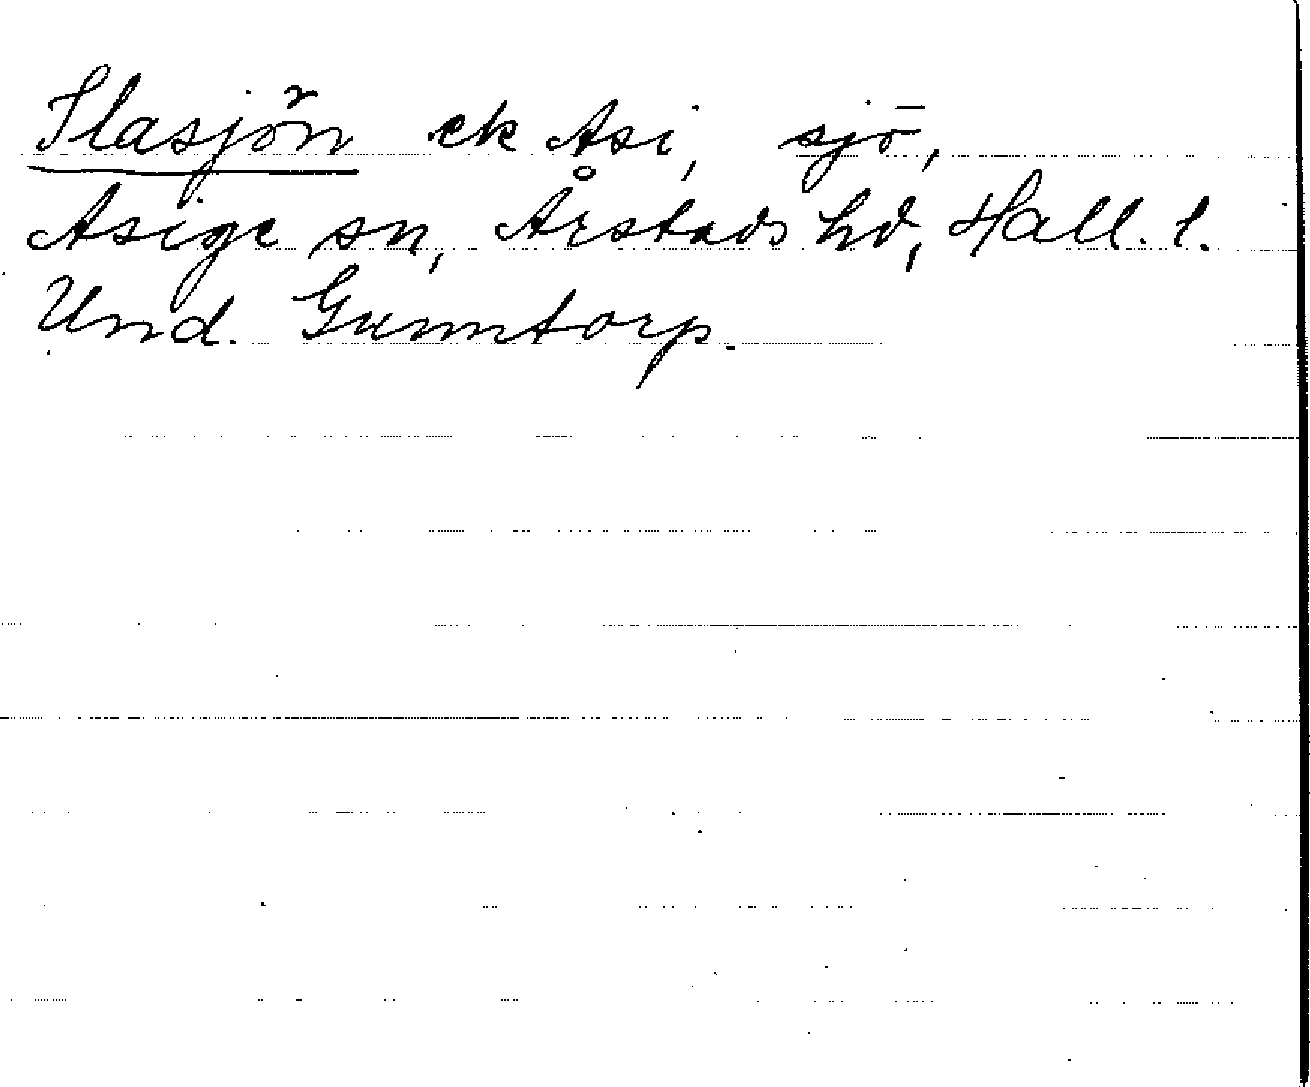 Slasjön ek Asi, sjö,
Asige sn, Årstads hd, Hall. l.
Und. Gunntorp.